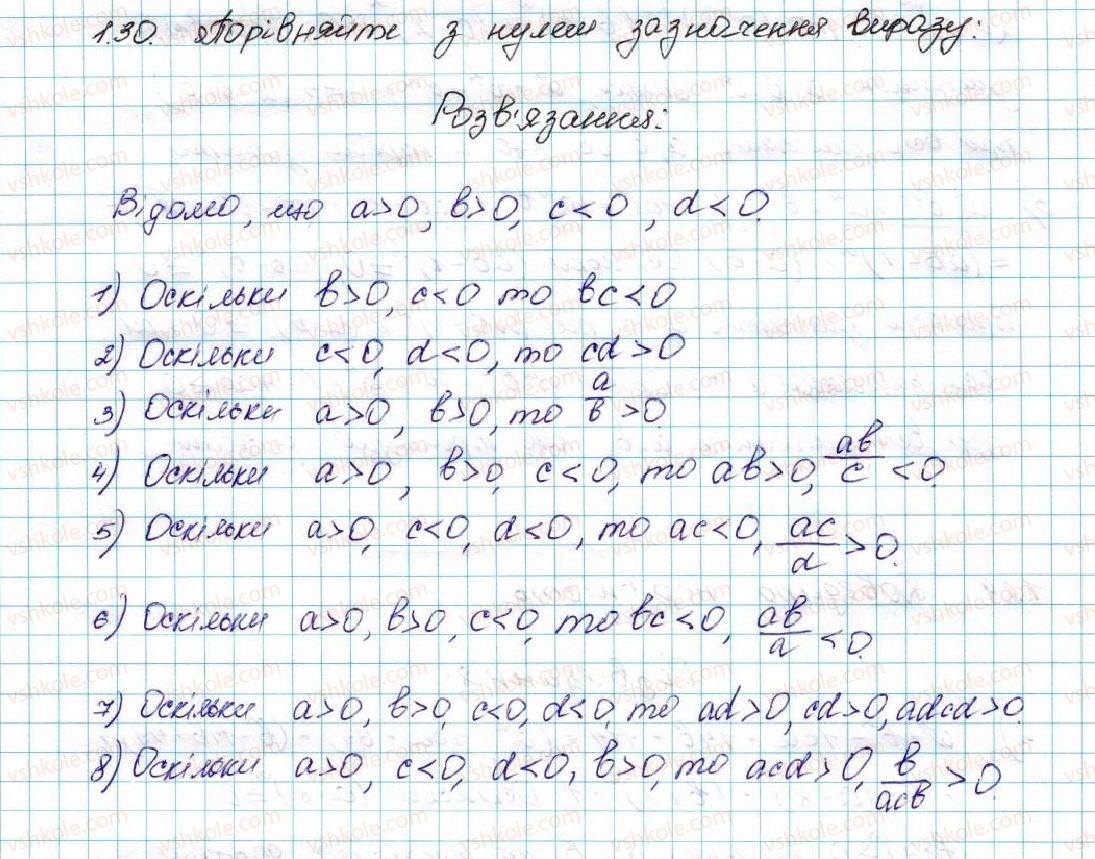 1.30. Порівняйте з нулем зазначення виразу:
Розв'язання:
Відомо, що a>0, b>0, c<0, d<0.
1) Оскільки b>0, c<0 то bc<0
2) Оскільки c<0, d<0, то cd>0
3) Оскільки a>0, b>0, то a/b >0.
4) Оскільки a>0, b>0, c<0, то ab>0, ab/c <0.
5) Оскільки a>0, c<0, d<0, то ac<0, ac/d >0.
6) Оскільки a>0, b>0, c<0, то bc<0, ab/a <0.
7) Оскільки a>0, b>0, c<0, d<0, то ad>0, cd>0, adcd>0.
8) Оскільки a>0, c<0, d<0, b>0, то acd>0, b/acb >0.